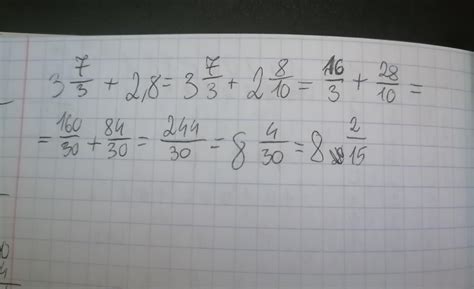 3 7/3 + 2,8 = 3 7/3 + 2 8/10 = 16/3 + 28/10 =
= 160/30 + 84/30 = 244/30 = 8 4/30 = 8 2/15